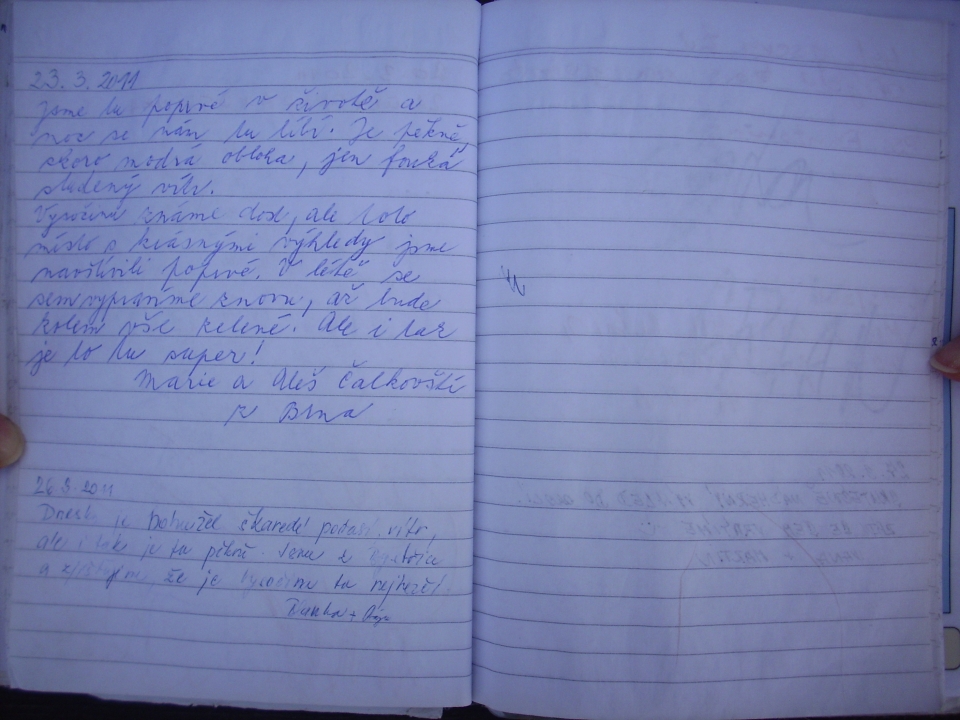 23. 3. 2011
Jsme tu poprvé v životě a
moc se nám tu líbí. Je pěkně,
skoro modrá obloha, jen fouká
studený vítr.
Vysočinu známe dost, ale toto
místo s krásnými výhledy jsme
navštívili poprvé. V létě se
sem vypravíme znovu, až bude
kolem vše zelené. Ale i tak
je to tu super!
Marie a Aleš Čalkovští
z Brna
26.3.2011
Dnes je bohužel škaredé počasí, vítr,
ale i tak je tu pěkně. Jsme z
a že je Vysočina ta nejhezčí